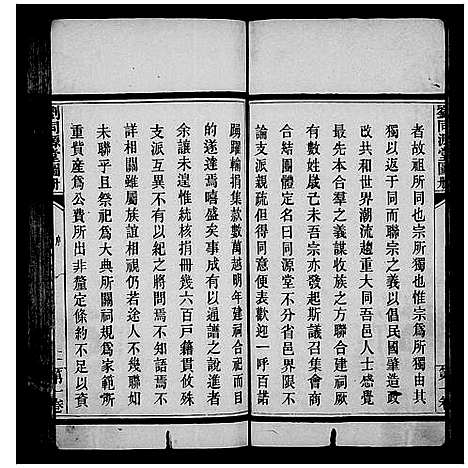 劉同源堂圖册
者故祖所同也宗所獨也惟宗爲所獨由其
獨以返於同而聯宗之義以倡民國肇造政
改共和世界潮流趨重大同吾邑人士感覺
最先本合羣之義謀收族之方聯合建祠厥
有數姓歲己未吾宗亦發起斯議召集會商
合結團體定名曰同源堂不分省邑界限不
論支派親疏但得同意便表歡迎一呼百諾
踴躍輸捐集款數萬越明年建祠合祀而目
的遂達焉嘻盛矣事成有以通譜之說進者
余讓未遑惟統核捐冊幾六百戶籍貫攸殊
支派互異不有以紀之將問焉不知語焉不
詳相關雖屬族誼相視仍若途人不幾聯如
未聯乎且祭祀爲大典所關祠規爲家範所
重貲產爲公費所出非釐定條約不足以資
劉同源堂圖册
第一卷